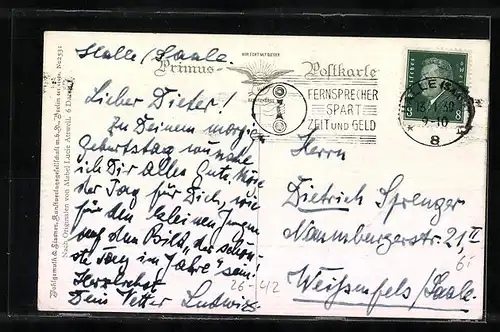 Halle/Saale.
Primus-Postkarte
Lieber Dieter!
Zu Deinem morgigen
Geburtstag wünsche
ich Dir alles Gute. Möge
der Tag für Dich, wie
für den kleinen Jungen
auf dem Bild, der schönste
Tag im Jahre sein!
Herzlichst
Dein Vetter Ludwig.
FERNSPRECHER
SPART
ZEIT UND GELD
HALLE (SAALE)
9-10
8
8
Herrn
Dietrich Sprenger
Naumburgerstr. 21, II
Weißenfels/Saale.
26-42
6.-
Nach Originalen von Mabel Lucie Attwell.